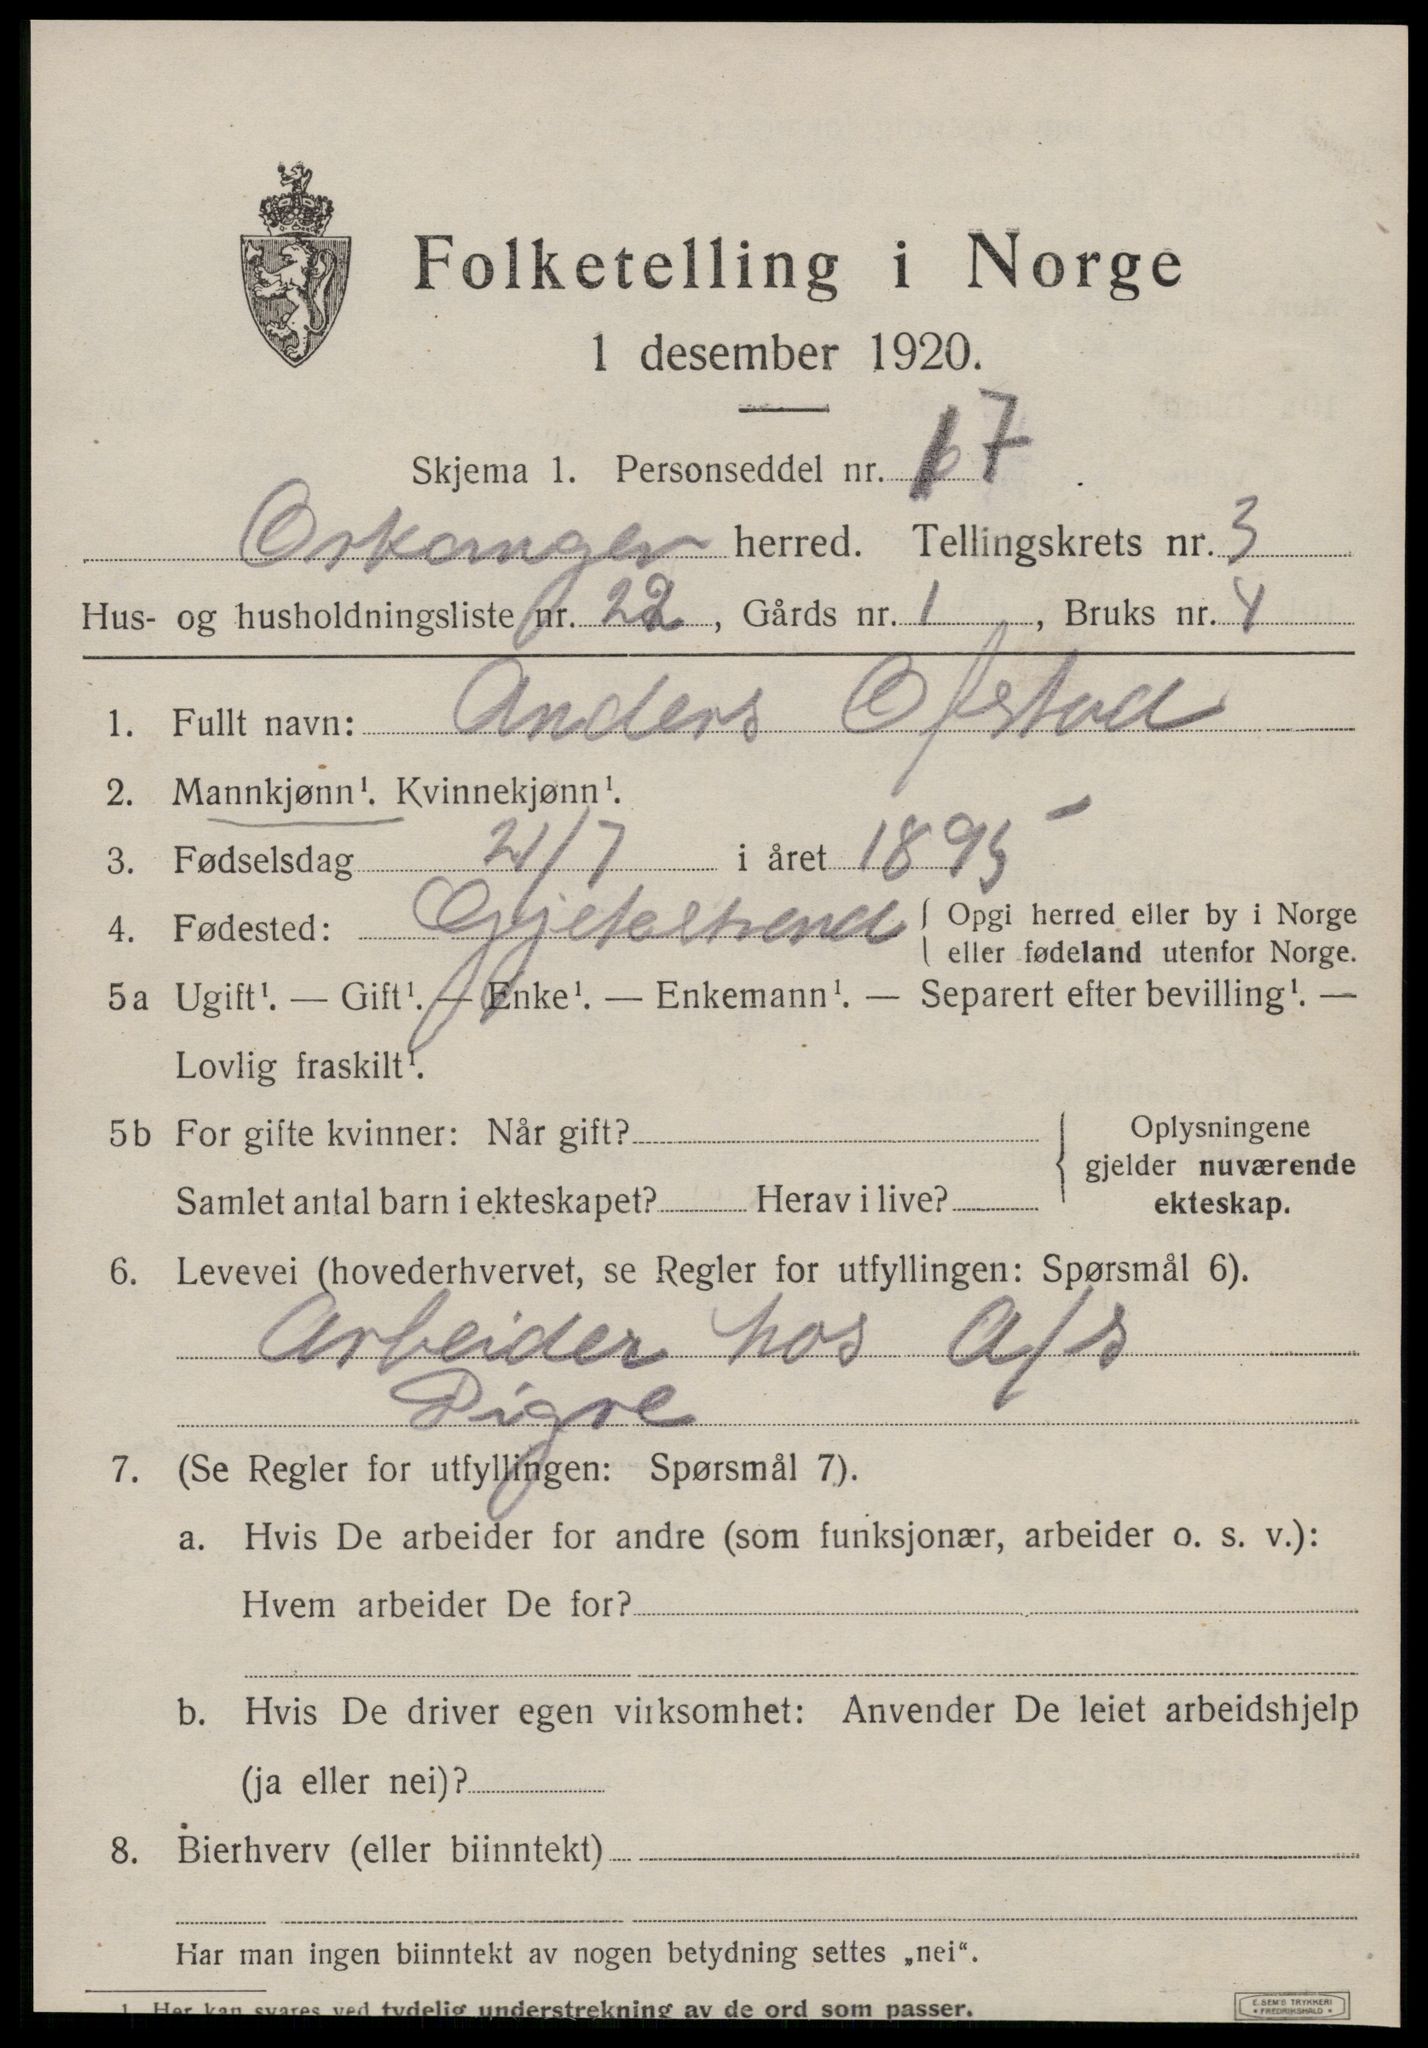 Folketelling i Norge
1 desember 1920.
Skjema 1. Personseddel nr. 17
Orkanger herred. Tellingskrets nr. 3
Hus- og husholdningsliste nr. 22, Gårds nr. 1, Bruks nr. 4
1. Fullt navn: Anders Ofstad
2. Mannkjønn¹. Kvinnekjønn¹.
3. Fødselsdag 21/7 i året 1895
4. Fødested: Opgi herred eller by i Norge
eller fødeland utenfor Norge.
5a Ugift¹. — Gift¹. — Enke¹. — Enkemann¹. — Separert efter bevilling¹. —
Lovlig fraskilt¹.
5b For gifte kvinner: Når gift?
Samlet antal barn i ekteskapet? Herav i live?
Oplysningene
gjelder nuværende
ekteskap.
6. Levevei (hovederhvervet, se Regler for utfyllingen: Spørsmål 6).
Arbeider hos A/s
Digre
7. (Se Regler for utfyllingen: Spørsmål 7).
a. Hvis De arbeider for andre (som funksjonær, arbeider o. s. v.):
Hvem arbeider De for?
b. Hvis De driver egen virksomhet: Anvender De leiet arbeidshjelp
(ja eller nei)?
8. Bierhverv (eller biinntekt)
Har man ingen biinntekt av nogen betydning settes „nei“.
1. Her kan svares ved tydelig understrekning av de ord som passer.
E. SEM'S TRYKKERI
FREDRIKSHALD